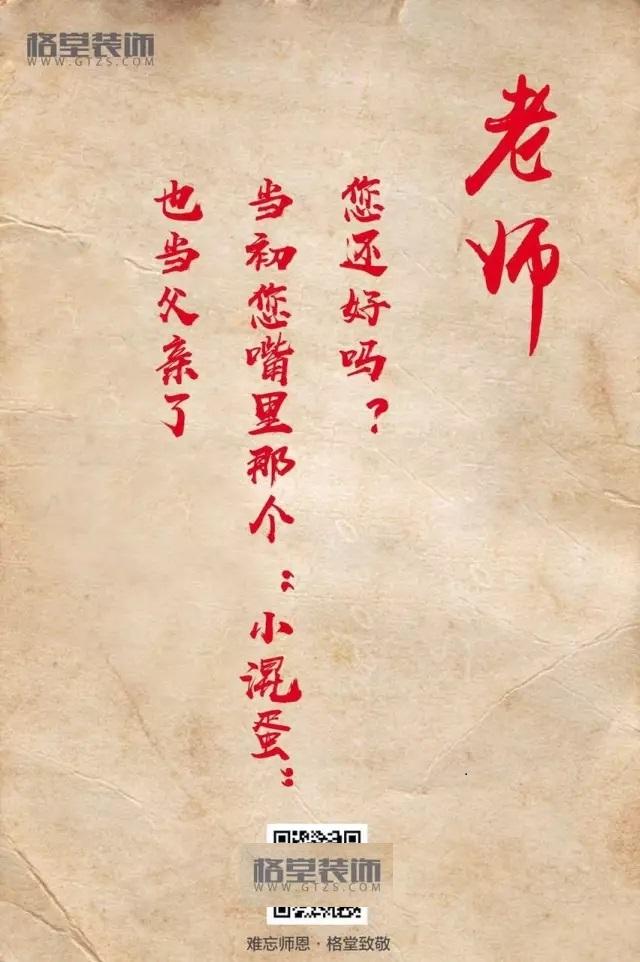 格堂装饰
WWW.GTZS.COM
老师
您还好吗？
当初您嘴里那个“小混蛋”
也当父亲了
格堂装饰
WWW.GTZS.COM
难忘师恩·格堂致敬